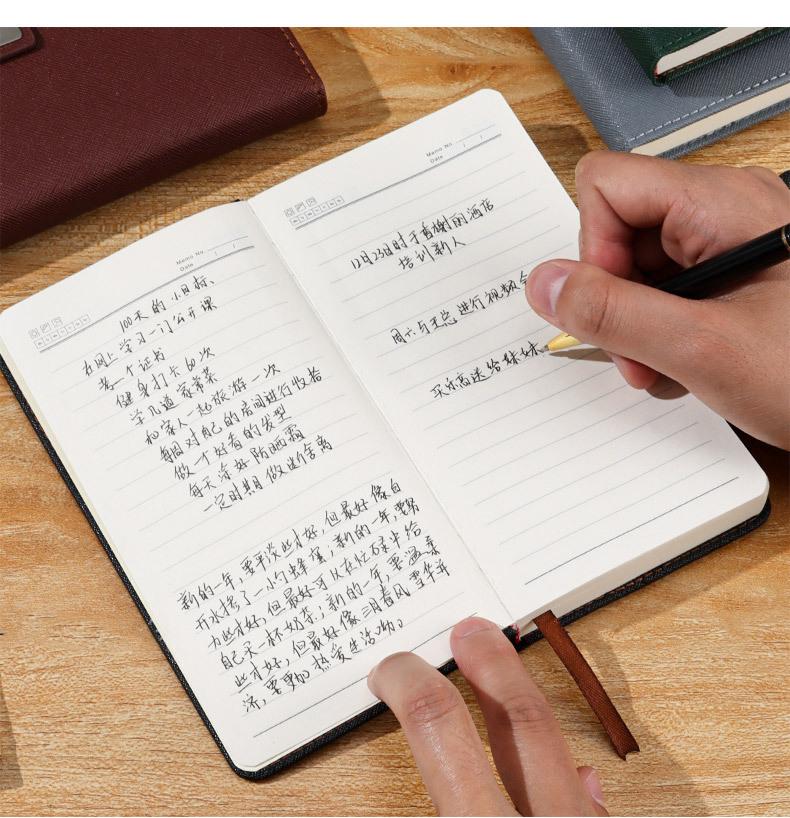 Memo No.
Date / /
100天的小目标、
在网上学习一门公开课
考一个证书
健身打卡60次
学几道家常菜
和家人一起旅游一次
每周对自己的房间进行收拾
做一个好看的发型
每天涂好防晒霜
一定时期做断舍离
新的一年,要平淡些才好,但最好像白
开水搅了一小勺蜂蜜;新的一年,要努
力些才好,但最好可以在忙碌中给
自己来一杯奶茶;新的一年,要温柔
些才好,但最好像三月春风
济,要更加热爱生活呦。
Memo No.
Date / /
12月23日时于香榭丽酒店
培训新人
周六与王总进行视频会
买乐高送给妹妹